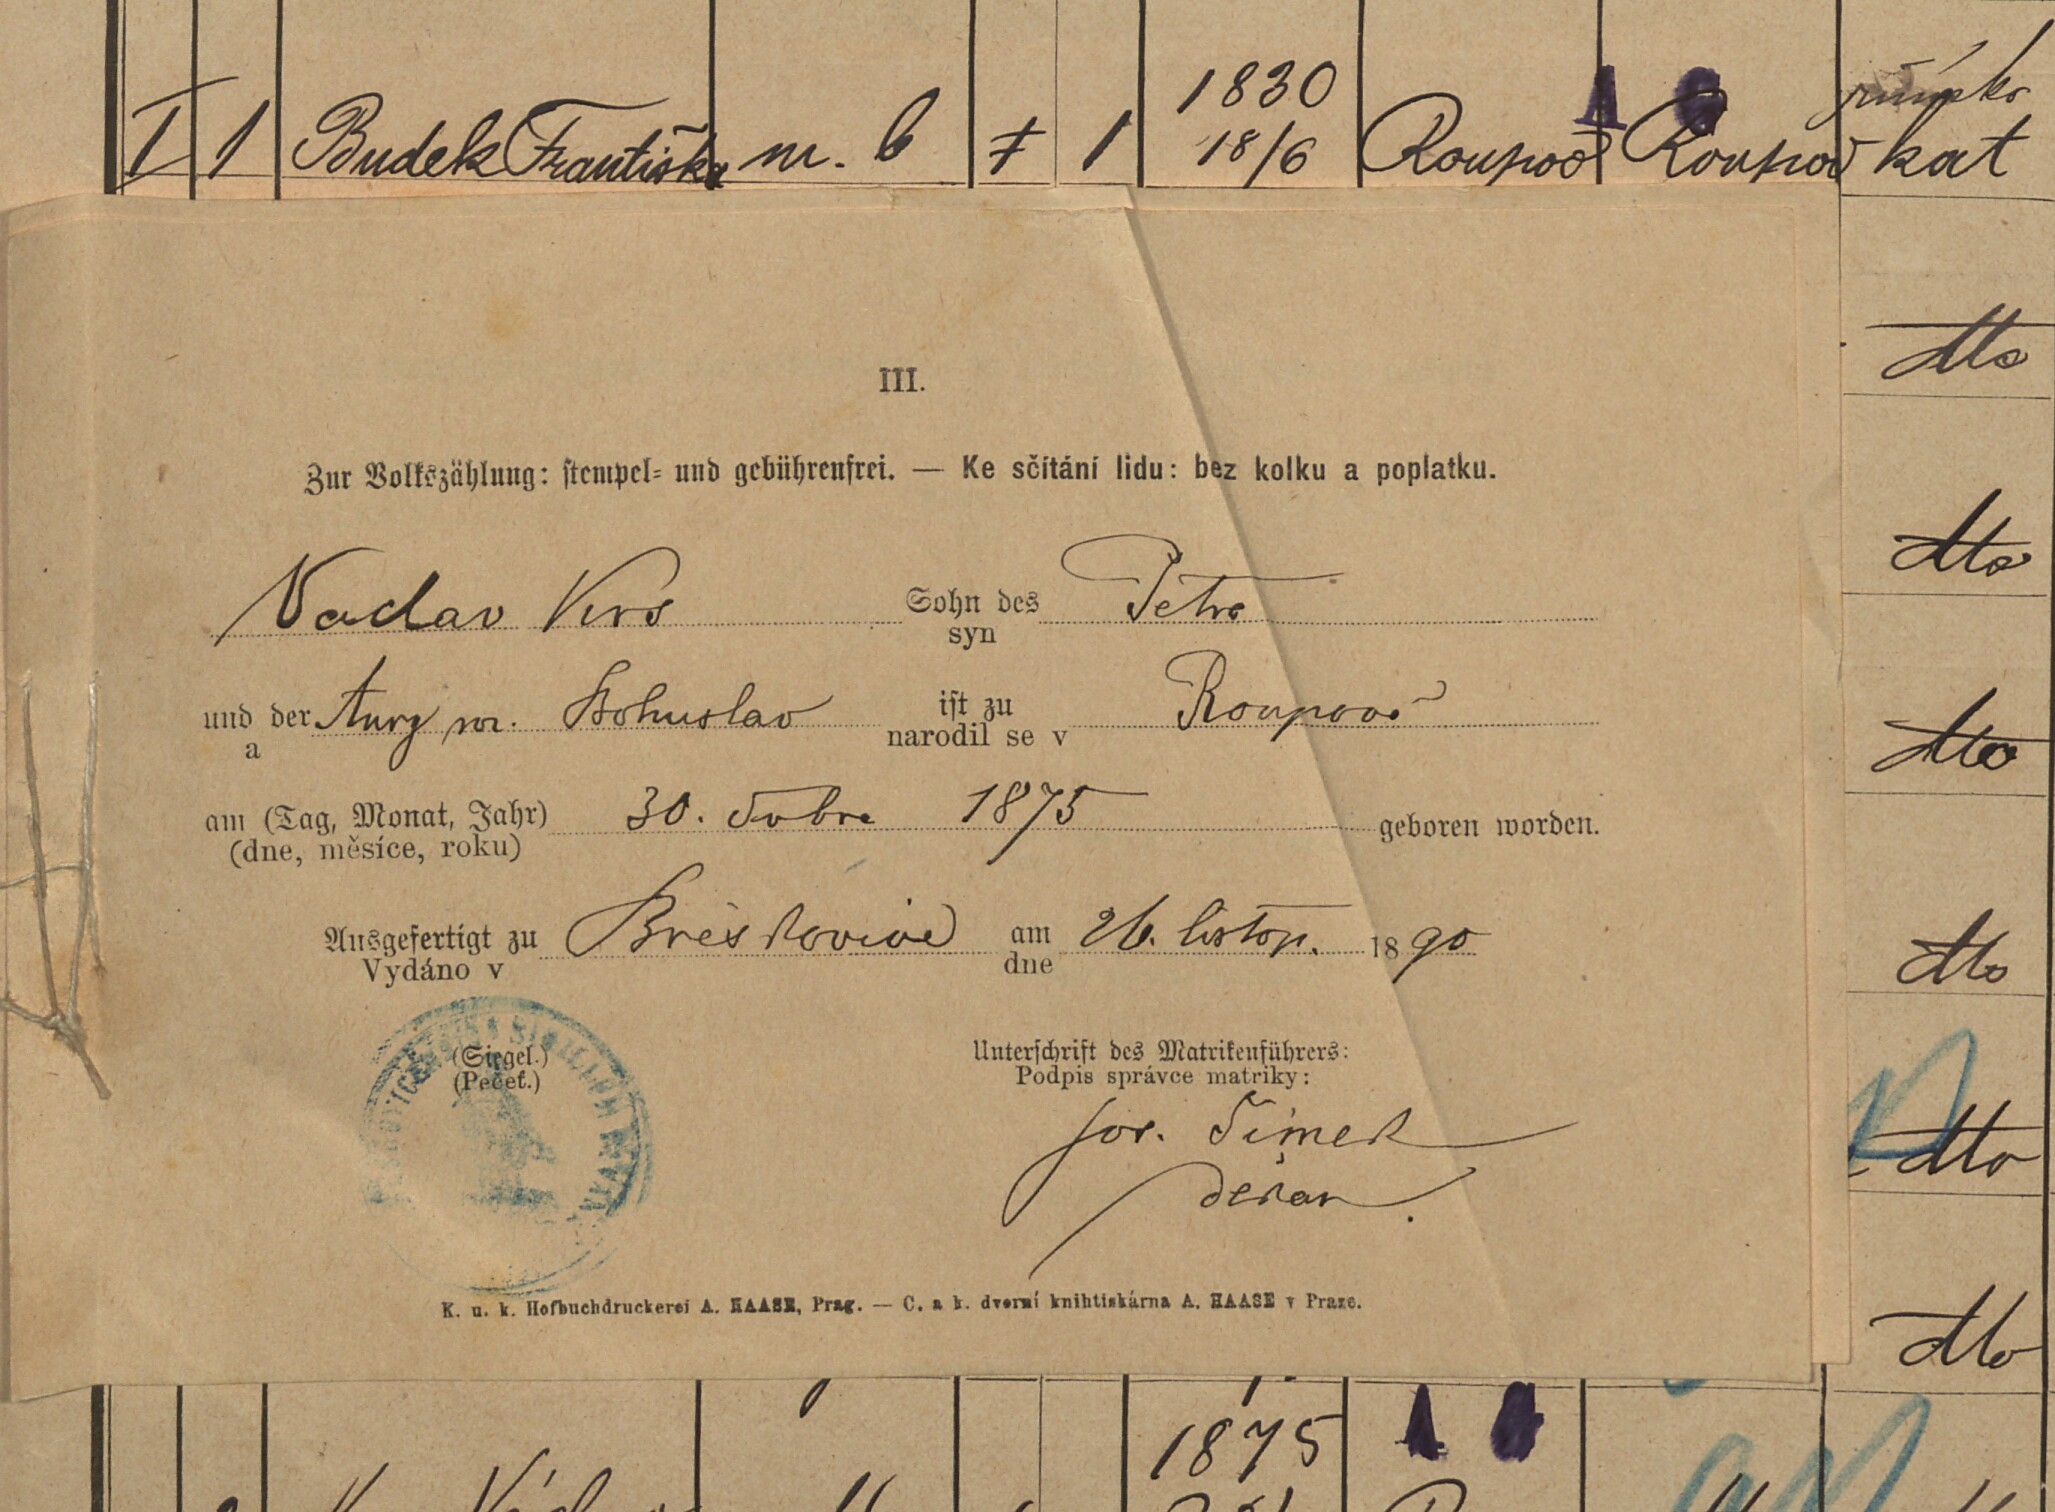 1830 1 0 římsko
I 1 Budek Františka m. b † 1 18/6 Roupov Roupov kat
dto
III.
Zur Volkszählung: stempel- und gebührenfrei. — Ke sčítání lidu: bez kolku a poplatku.
dto
Vaclav Krs Sohn des Petra
syn
und der Anny roz. Bohuslav ist zu Roupově
a narodil se v
dto
am (Tag, Monat, Jahr) 30. 1875 geboren worden.
(dne, měsíce, roku)
Ausgefertigt zu Břeskovice am 26. listop. 1890
Vydáno v dne
dto
(Siegel.) Unterschrift des Matrikenführers:
(Pečeť.) Podpis správce matriky:
Jos. Šimek
dto
děkan.
K. u. k. Hofbuchdruckerei A. HAASE, Prag. — C. a k. dvorní knihtiskárna A. HAASE v Praze.
dto
1875 1 0